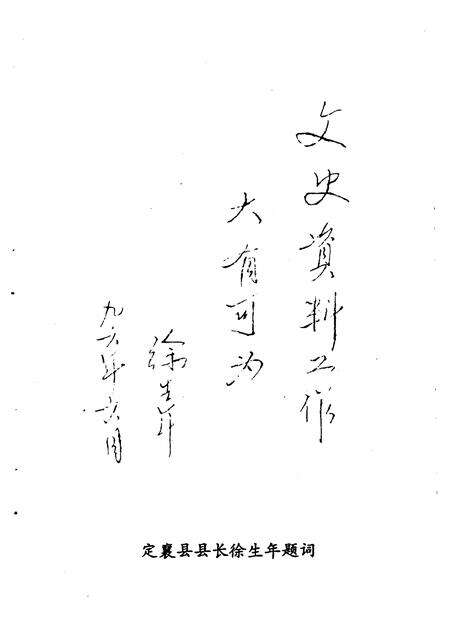 文史资料工作
大有可为
徐生年
九六年六月
定襄县县长徐生年题词